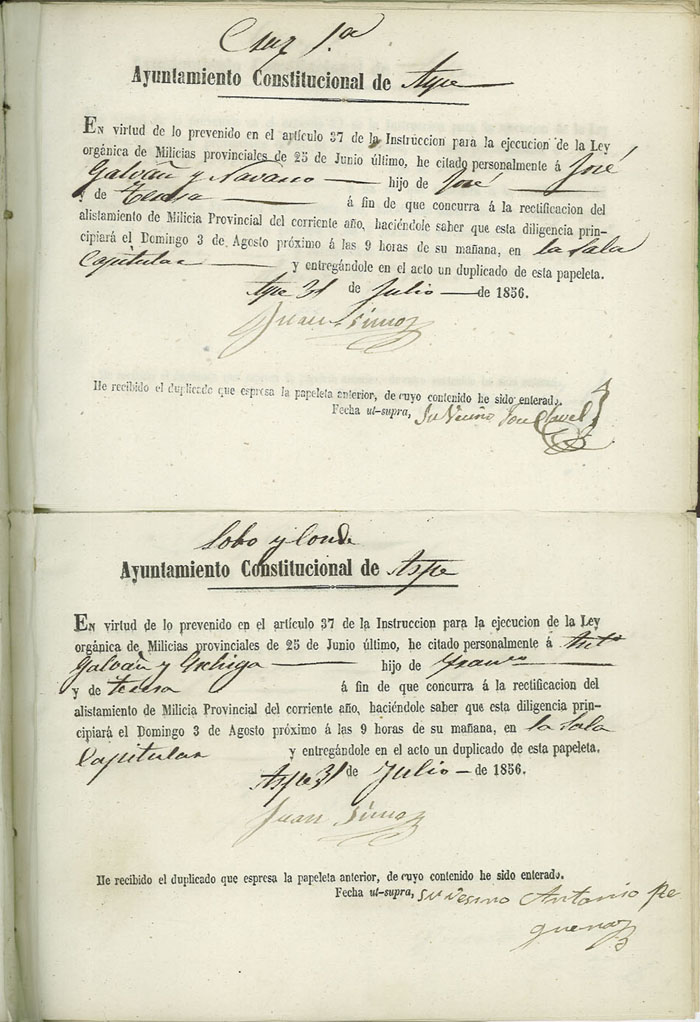 Cruz 1.ª
Ayuntamiento Constitucional de Aspe
EN virtud de lo prevenido en el artículo 37 de la Instruccion para la ejecucion de la Ley
orgánica de Milicias provinciales de 25 de Junio último, he citado personalmente á José
Galván y Navarro hijo de José
y de Teresa á fin de que concurra á la rectificacion del
alistamiento de Milicia Provincial del corriente año, haciéndole saber que esta diligencia prin-
cipiará el Domingo 3 de Agosto próximo á las 9 horas de su mañana, en la Sala
Capitular y entregándole en el acto un duplicado de esta papeleta.
Aspe 31 de Julio de 1856.
Juan
He recibido el duplicado que espresa la papeleta anterior, de cuyo contenido he sido enterado.
Fecha ut-supra,
Lobo y Conde
Ayuntamiento Constitucional de Aspe
EN virtud de lo prevenido en el artículo 37 de la Instruccion para la ejecucion de la Ley
orgánica de Milicias provinciales de 25 de Junio último, he citado personalmente á Antº
Galván y hijo de Franco
y de Teresa á fin de que concurra á la rectificacion del
alistamiento de Milicia Provincial del corriente año, haciéndole saber que esta diligencia prin-
cipiará el Domingo 3 de Agosto próximo á las 9 horas de su mañana, en la Sala
Capitular y entregándole en el acto un duplicado de esta papeleta.
Aspe 31 de Julio de 1856.
Juan
He recibido el duplicado que espresa la papeleta anterior, de cuyo contenido he sido enterado.
Fecha ut-supra, su vesino Antonio